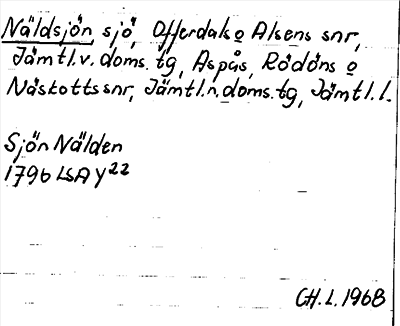 Näldsjön, sjö, Offerdals o Alsens snr,
Jämtl.v. doms. tg, Aspås, Rödöns o
Näskotts snr, Jämtl.n. doms. tg, Jämtl. l.
Sjön Nälden
1796 LSA Y²²
CH. L. 1968